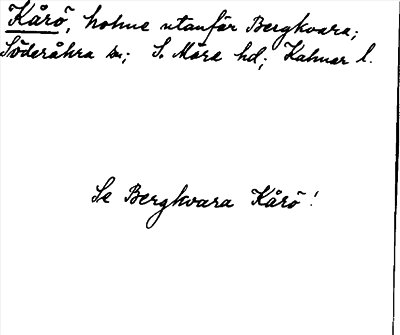 Kårö, holme utanför Bergkvara;
Söderåkra sn; S. Möre hd; Kalmar l.
Se Bergkvara Kårö!